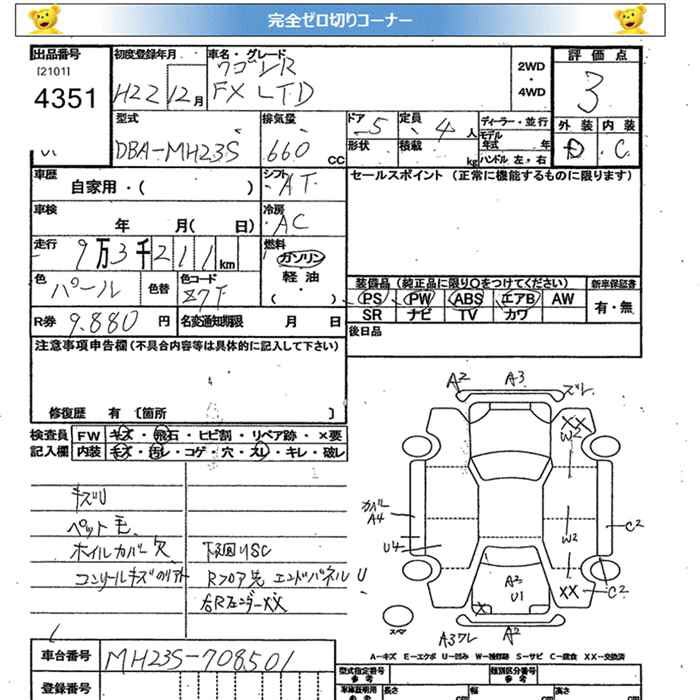 完全ゼロ切りコーナー
出品番号 初度登録年月 車名・グレード 評価点
[2101]
4351
H22 12月
ワゴンR
FX LTD
2WD
・
4WD
3
型式 排気量 ドア 定員 ディーラー・並行 外装 内装
DBA-MH23S 660 CC 5 4 人 モデル年式 年 D C
形状 積載 kg ハンドル 左・右
車歴 シフト セールスポイント (正常に機能するものに限ります)
自家用・( ) AT
車検 冷房
年 月( 日) AC
走行 燃料
9万3千211km ガソリン
軽油
・( )
色 色替 色コード 装備品 (純正品に限り○をつけてください) 新車保証書
パール Z7T PS PW ABS エアB AW 有・無
R券 9.880 円 名変通知期限 月 日 SR ナビ TV カワ
後日品
注意事項申告欄(不具合内容等は具体的に記入して下さい)
修復歴 有 〔箇所 〕
検査員 FW キズ・飛石・ヒビ割・リペア跡・×要
記入欄 内装 キズ・汚レ・コゲ・穴・スレ・キレ・破レ
キズU
ペット毛
ホイルカバー欠 下廻りSC
Rフロア先 エンドパネル U
右Rフェンダー××
A2 A3 ズレ
XX
W2
カバー
A4
W2 C2
U4
A2
U1
X
XX C2
スペア
A3ワレ A2
A-キズ E-エクボ U-凹み W-補修跡 S-サビ C-腐食 XX-交換済
車台番号 MH23S-708501
型式指定番号 類別区分番号
登録番号 車庫証明用 長さ 幅 高さ
参考 cm cm cm